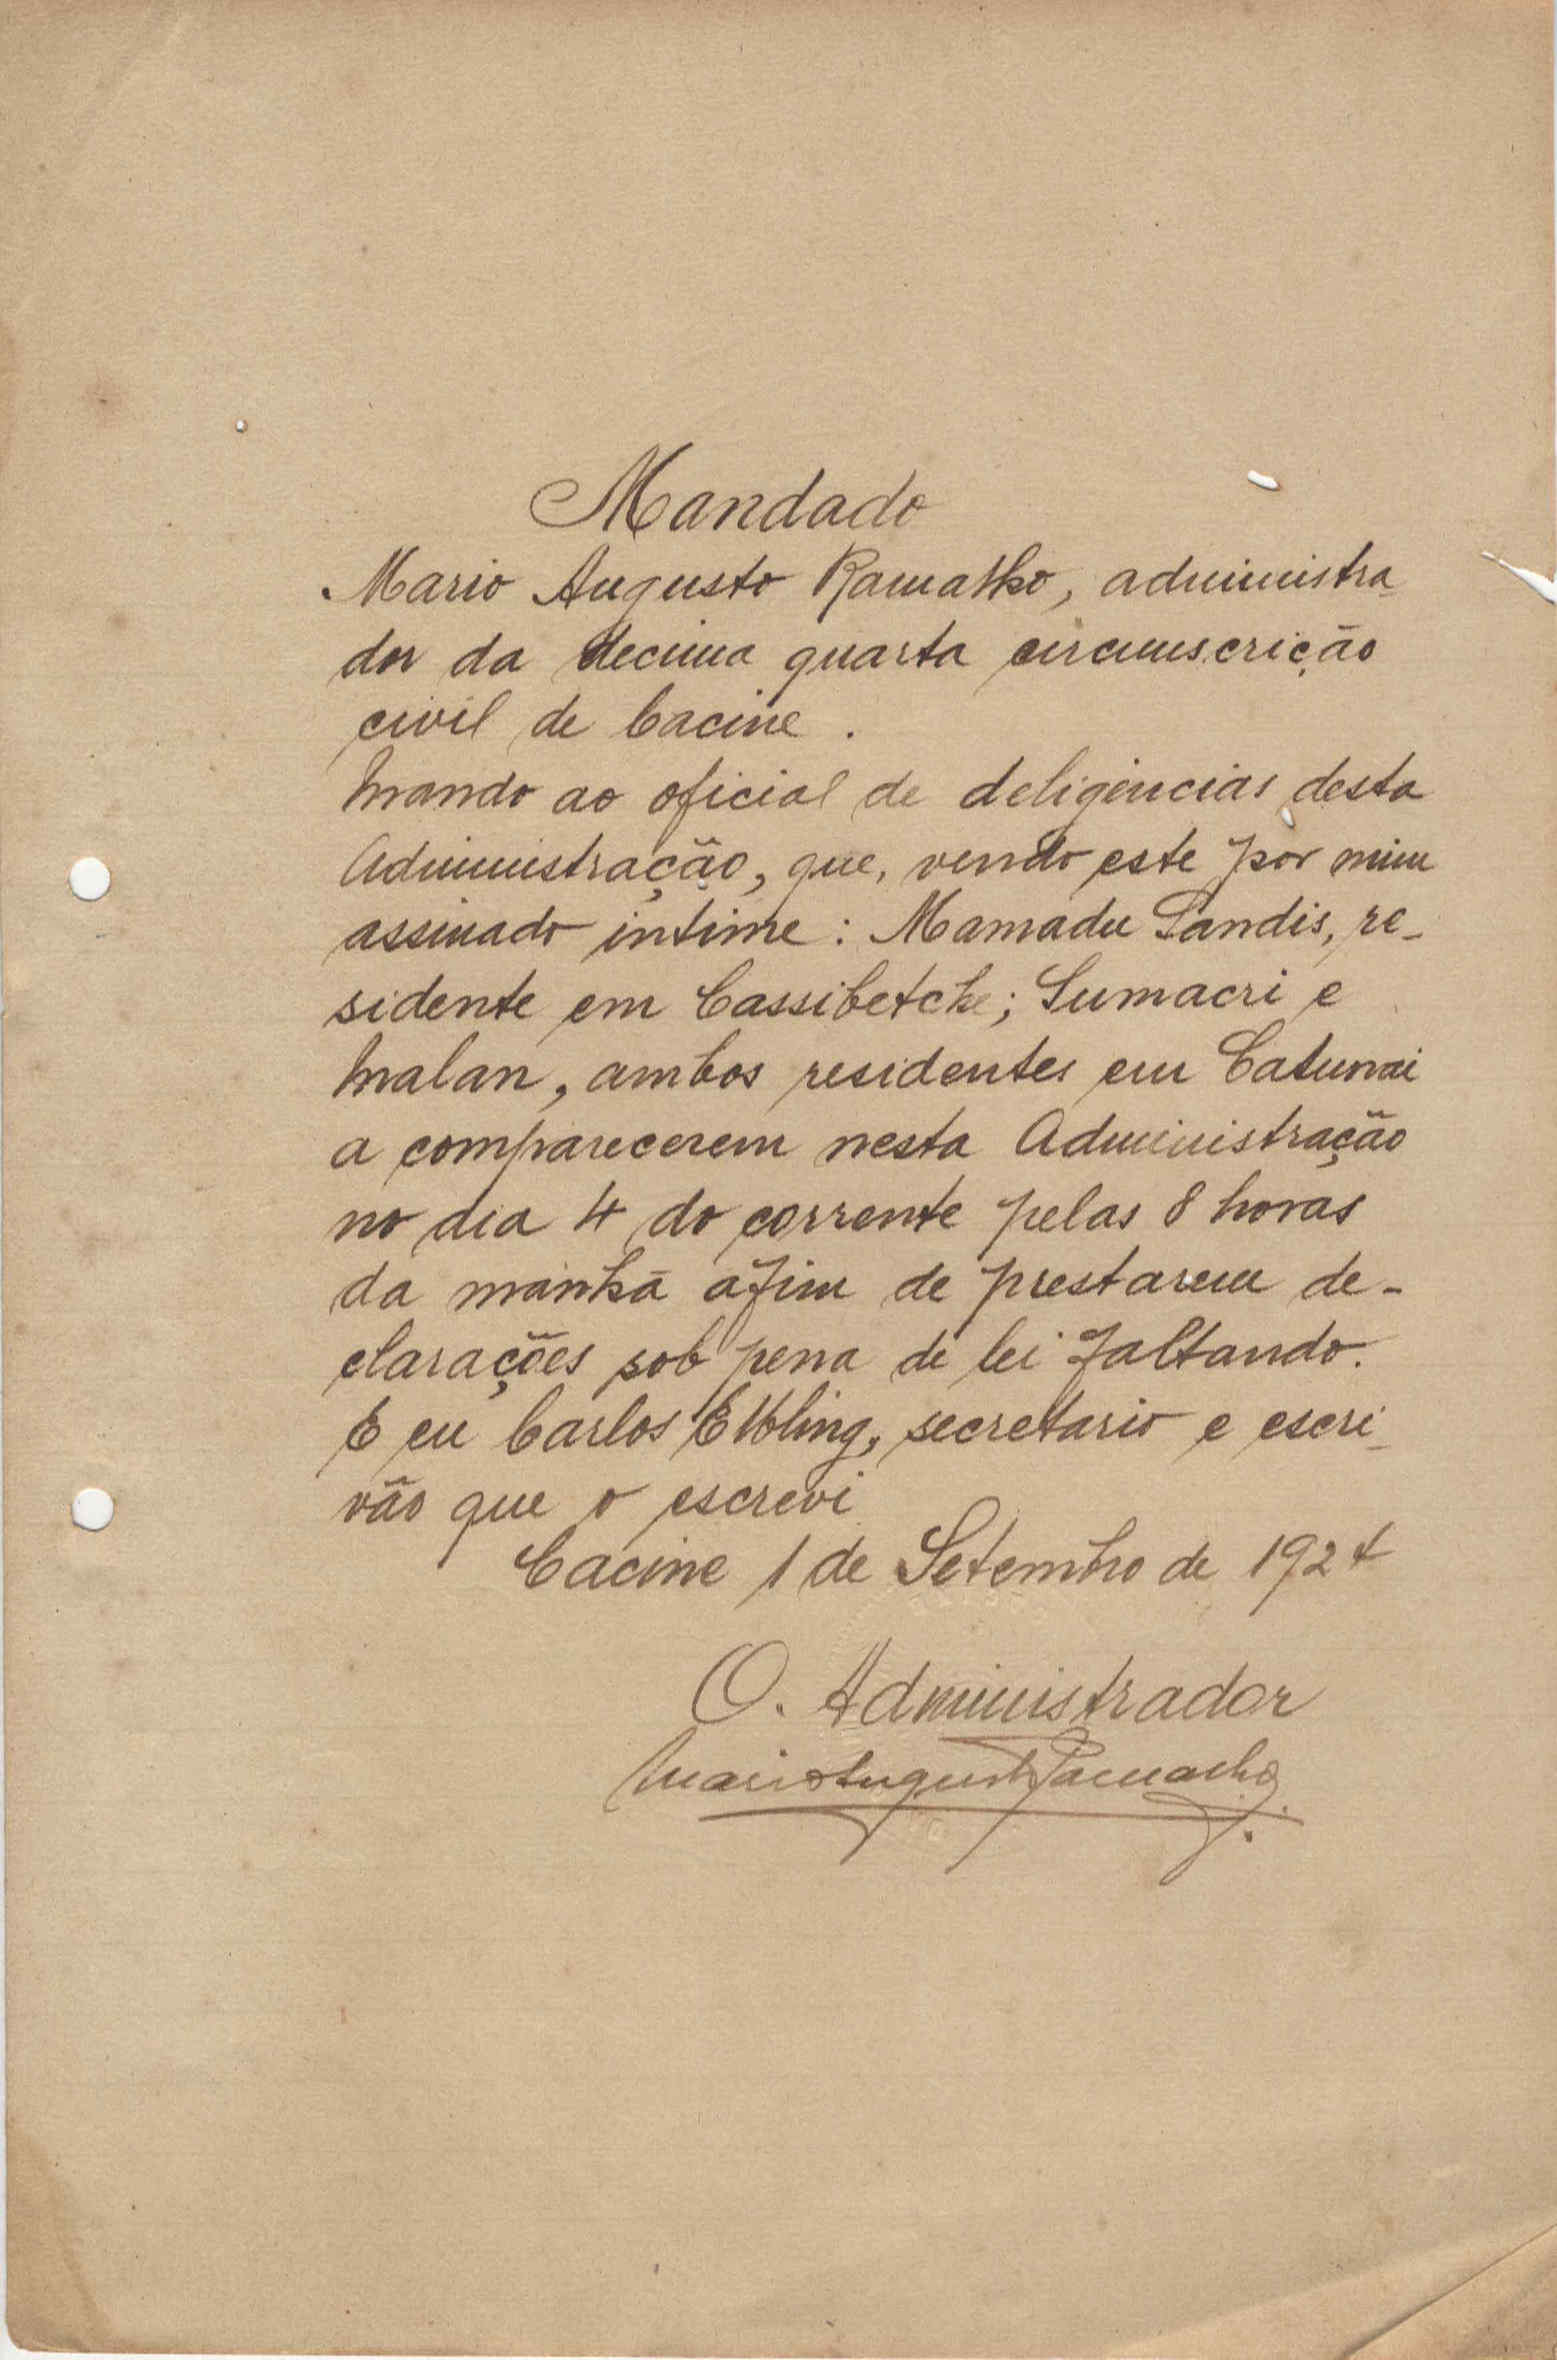 Mandado
Mario Augusto Ramalho, administra-
dor da decima quarta circunscrição
civil de Cacine.
Mando ao oficial de deligências desta
Administração, que, vendo este por mim
assinado intime: Mamadu Sandis, re-
sidente em Cassibetche; Sumacri e
Malan, ambos residentes em Catunai
a comparecerem nesta Administração
no dia 4 do corrente pelas 8 horas
da manhã afim de prestarem de-
clarações sob pena de lei faltando.
E eu Carlos, secretario e escri-
vão que o escrevi
Cacine 1 de Setembro de 1924
O. Administrador
Mario Augusto Ramalho